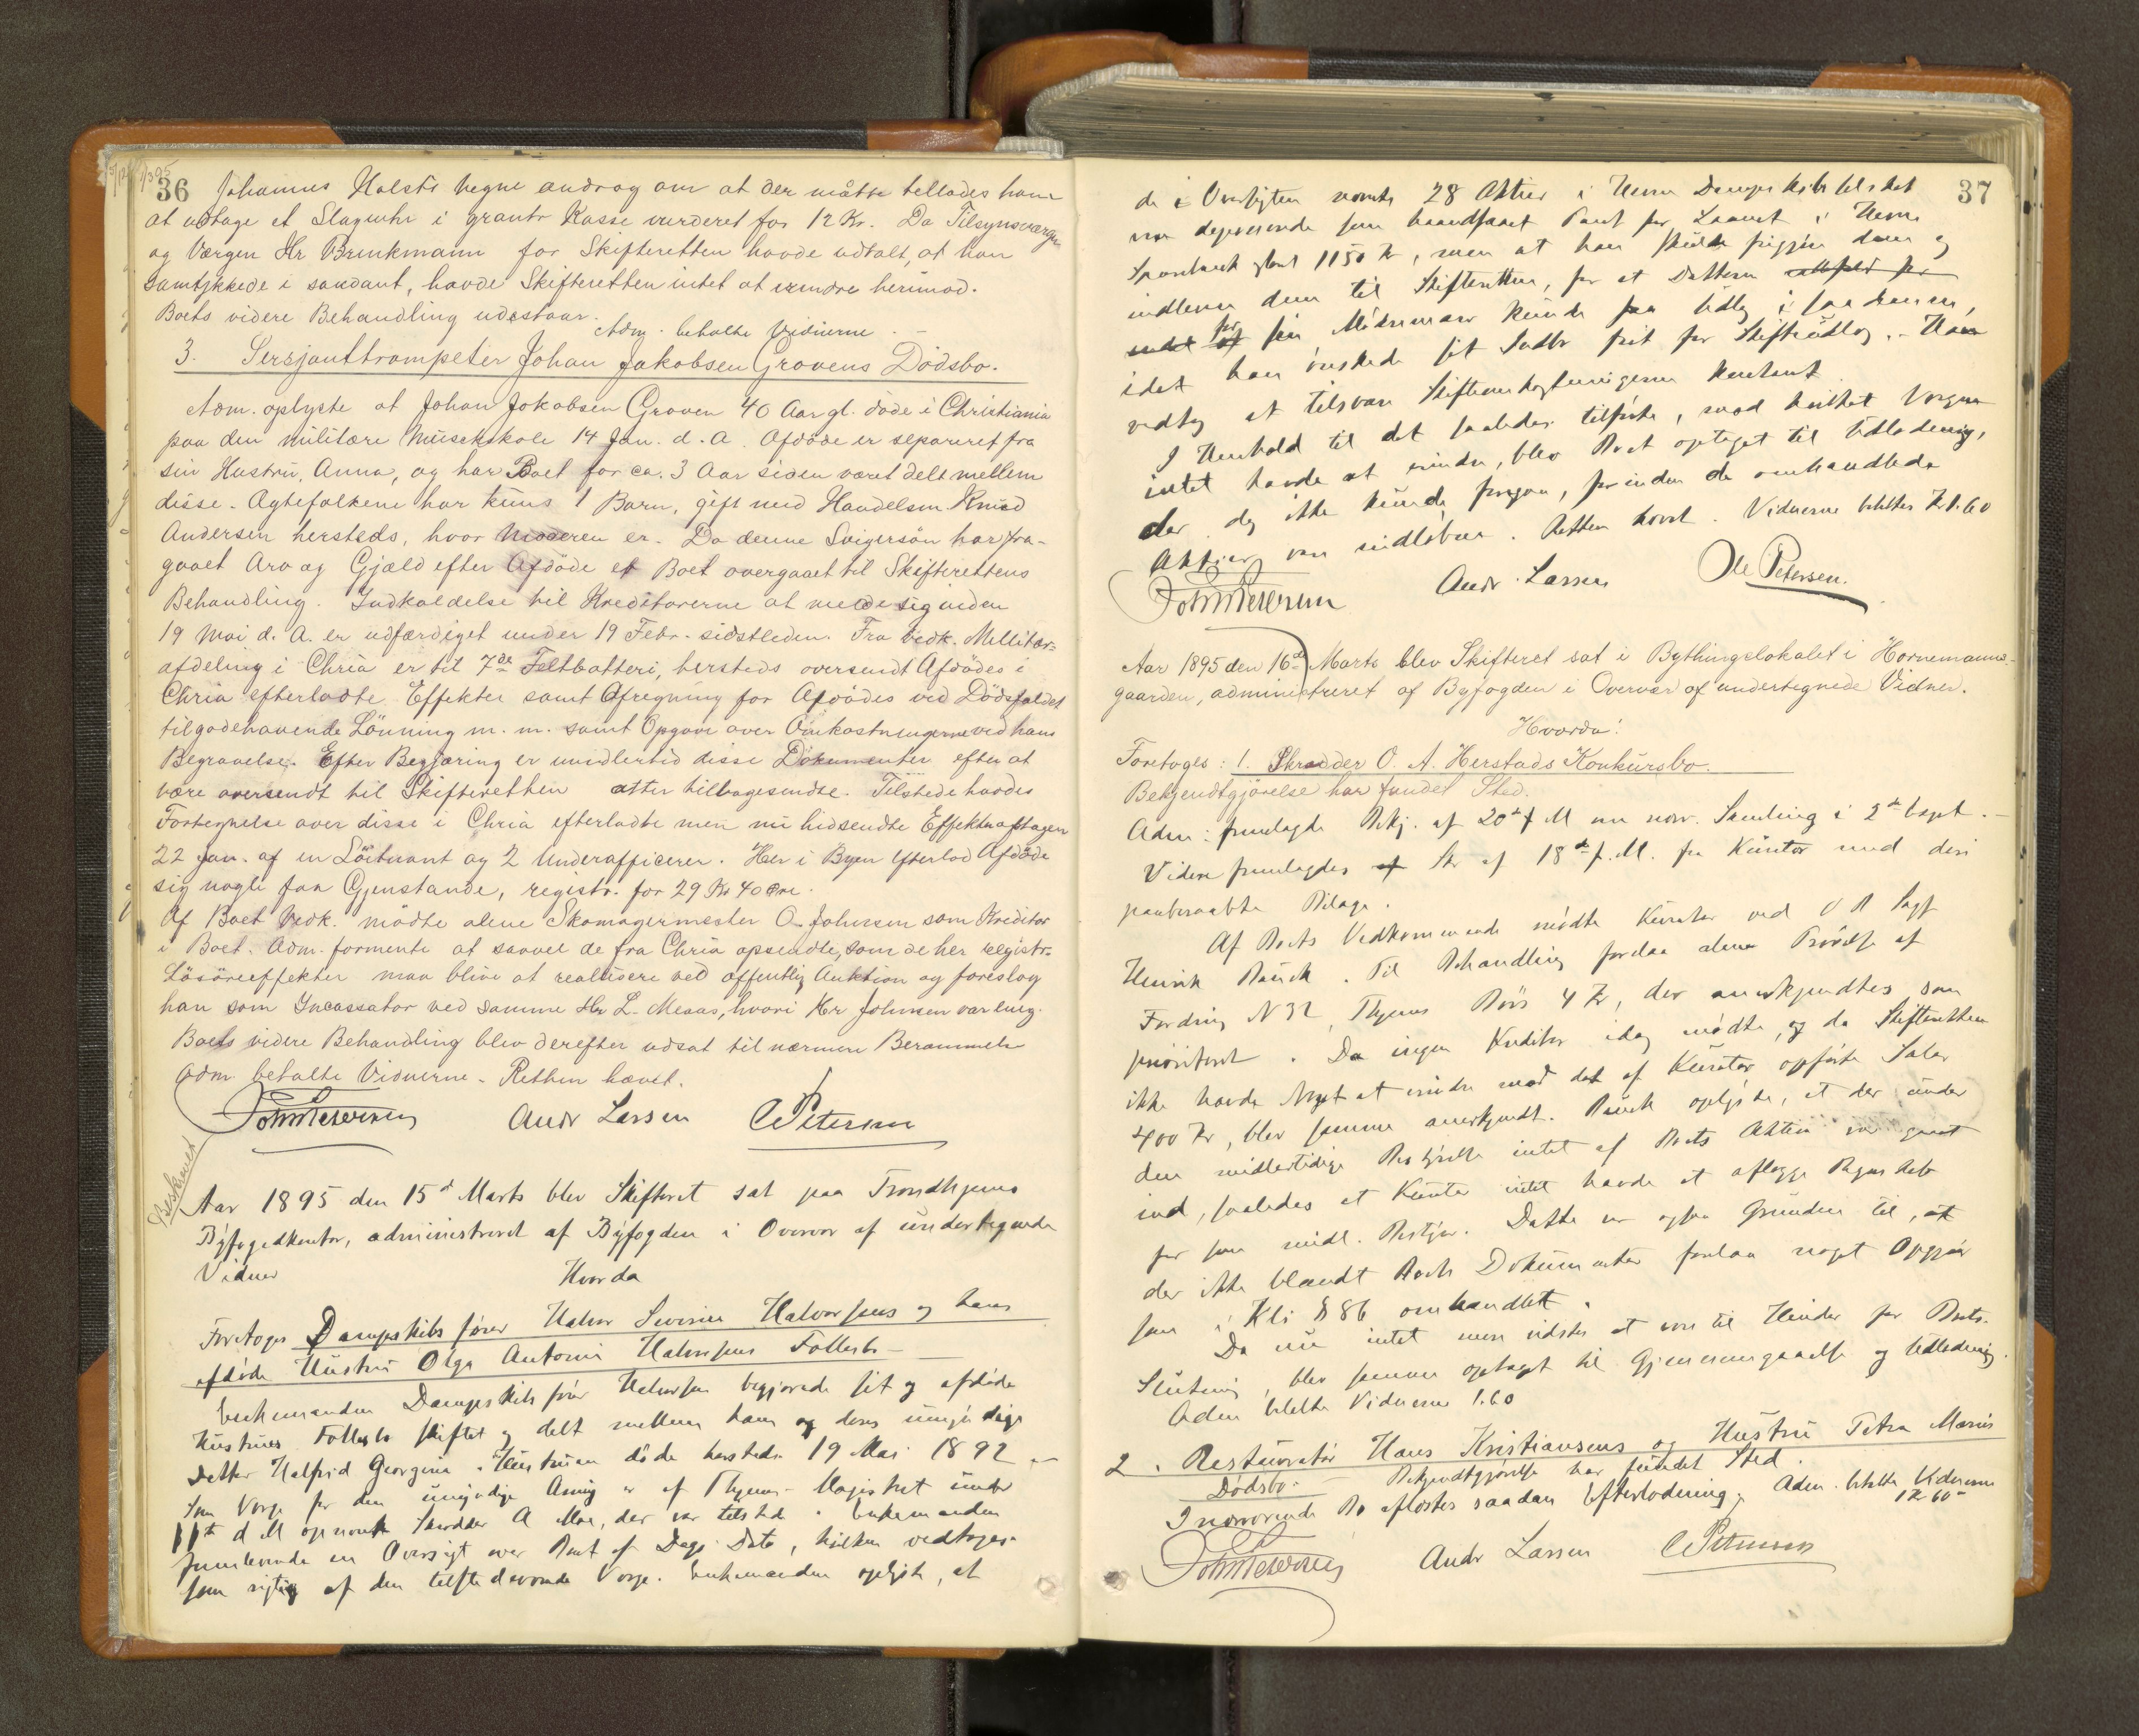 36 Johannes Holsts Vegne androg om at der måtte tillades ham
at udtage et Slaguhr i  Kasse vurderet for 12 Kr. Da Tilsynsværge
og Værgen Hr Brinkmann for Skifteretten havde udtalt, at han
samtykkede i saadant, havde Skifteretten intet at erindre herimod.
Boets videre Behandling udestaar.
Adm. betalte Vidnerne. -
3. Sersjanttrompeter Johan Jakobsen Grovens Dødsbo.
Adm. oplyste at Johan Jakobsen Groven 40 Aar gl. døde i Christiania
paa den militære Musikskole 14 Jan. d. A. Afdøde er separeret fra
sin Hustru, Anna, og har Boet for ca. 3 Aar siden været delt mellem
disse. Ægtefolkene har kuns 1 Barn, gift med Handelsm. Knud
Andersen hersteds, hvor Moderen er. Da denne Svigersøn har fra-
gaaet Arv og Gjæld efter Afdøde er Boet overgaaet til Skifterettens
Behandling. Indkaldelse til Kreditorerne at melde sig inden
19 Mai d. A. er udfærdiget under 19 Febr. sidstleden. Fra vedk. Militær-
afdeling i Chria er til 7de Feltbatteri, hersteds oversendt Afdødes i
Chria efterladte Effekter samt Afregning for Afdødes ved Dødsfaldet
tilgodehavende Lønning m. m. samt Opgave over Omkostningerne ved hans
Begravelse. Efter Begjæring er imidlertid disse Dokumenter efter at
være oversendt til Skifteretten atter tilbagesendte. Tilstede havdes
Fortegnelse over disse i Chria efterladte men nu hidsendte Effekter optagen
22 Jan. af en Løitnant og 2 Underofficerer. Her i Byen efterlod Afdøde
sig nogle faa Gjenstande, registr. for 29 Kr 40 Øre.
Af Boet Vedk. mødte alene Skomagermester O. Johnsen som Kreditor
i Boet. Adm. formente at saavel de fra Chria opsendte, som de her registr.
Løsøreeffekter maa blive at realisere ved offentlig Auktion og foreslog
han som Incassator ved samme Hr L. Meaas, hvori Hr Johnsen var enig.
Boets videre Behandling blev derefter udsat til nærmere Berammelse
Adm. betalte Vidnerne. Retten hævet.
Andr Larsen C Petersen
Beskrevet
Aar 1895 den 15d Marts blev Skifteret sat paa Trondhjems
Byfogedkontor, administreret af Byfogden i Overvær af undertegnede
Vidner Hvorda
Foretoges Dampskibsfører Halvor Severin Halvorsens og hans
afdøde Hustru Olga Antonie Halvorsens Fællesbo -
Enkemanden Dampskibsfører Halvorsen begjærede sit og afdøde
Hustrues Fællesbo skiftet og delt mellem ham og deres umyndige
Datter Halfrid Georgine. Hustruen døde hersteds 19 Mai 1892. -
Som Værge for den umyndige Arving er af Thjems Magistrat under
11te d M opnævnt Skrædder A Moe, der var tilstede. Enkemanden
fremleverede en Oversigt over Boet af Dags Dato, hvilken vedtoges
som rigtig af den tilstedeværende Værge. Enkemanden oplyste, at
37
de i Oversigten nævnte 28 Aktier i Hevne Dampskibsselskab
var deponerede som haandfaaet Pant for Laanet i Hevne
Sparebank stort 1150 Kr, men at han skulde frigjøre dem og
indlevere dem til Skifteretten, for at Datteren
for sin Mødrenearv kunde faa Udlæg i saadanne,
idet han ønskede sit Indbo frit for Skifteudlæg. - Han
vedtog at tilsvare Skifteomkostningerne kontant
I Henhold til det saaledes tilførte, mod hvilket Værgen
intet havde at erindre, blev Boet optaget til Udlodning,
der dog ikke kunde foregaa, førinden de omhandlede
Aktier var indløbne. Retten hævet. Vidnerne betaltes Kr 1.60
Andr. Larsen Ole Petersen.
Aar 1895 den 16d Marts blev Skifteret sat i Bythingslokalet i Hornemanns-
gaarden, administreret af Byfogden i Overvær af undertegnede Vidner.
Hvorda!
Foretoges: 1. Skrædder O. A. Herstads Konkursbo.
Bekjendtgjørelse har fundet Sted.
Adm: fremlagde Bekj. af 20de f M om nærv. Samling i 2de Expl. -
Videre fremlagdes Skr af 18de f. M. fra Kurator med deri
paaberaabte Bilage.
Af Boets Vedkommende mødte Kurator ved O R Sagf
Henrik Bauck. Til Behandling forelaa alene Prøvelse af
Fordring N 32, Thjems Børs 4 Kr, der anerkjendtes som
prioriteret. Da ingen Kreditor idag mødte, og da Skifteretten
ikke havde Noget at erindre mod det af Kurator opførte Salær
400 Kr, blev samme anerkjendt. Bauck oplyste, at der under
den midlertidige Bestyrelse intet af Boets Aktiva var gaaet
ind, saaledes at Kurator intet havde at aflægge Regnskab
for som midl. Bestyr. Dette var ogsaa Grunden til, at
der ikke blandt Boets Dokumenter forelaa noget Opgjør
som i Kl § 86 omhandlet.
Da nu intet mere vidstes at være til Hinder for Boets
Slutning, blev samme optaget til Gjennemgaaelse og Udlodning.
Adm betalte Vidnerne 1.60
2. Restauratør Hans Kristiansens og Hustru Petra Maries
Dødsbo. Bekjendtgjørelse har fundet Sted.
I nærværende Bo afsluttes saadan Efterlodning. Adm. betalte Vidnerne
1 Kr 60
Andr Larsen C Petersen